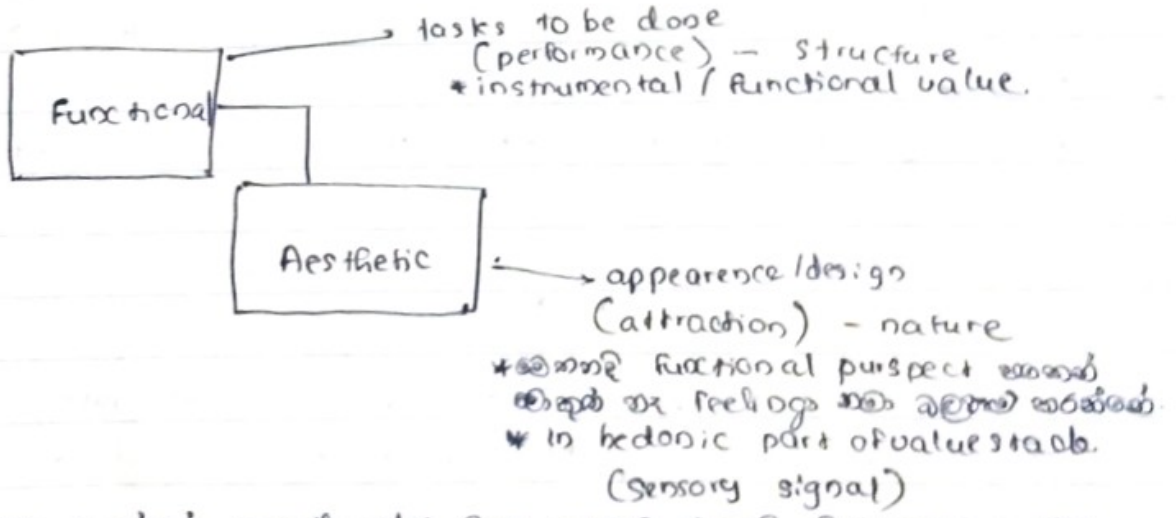 tasks to be done
(performance) - structure
* instrumental / functional value.
Functional
Aesthetic
appearence / design
(attraction) - nature
* මෙතනදි functional purspect
නෑ feelings තමා බලපෑම කරන්නේ.
* in hedonic part of value stack.
(sensory signal)